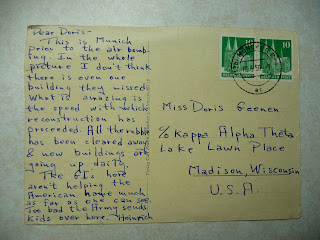 Dear Doris-
This is Munich
prior to the air bomb-
ing. In the whole
picture I don't think
there is even one
building they missed.
What is amazing is
the speed with which
reconstruction has
proceeded. All the rubble
has been cleared away
& new buildings are
going up daily.
The GI's here
aren't helping the
American name much
as far as one can see.
Too bad the Army sends
kids over here. Heinrich
10
10
Miss Doris Geenen
c/o Kappa Alpha Theta
Lake Lawn Place
Madison, Wisconsin
U.S.A.